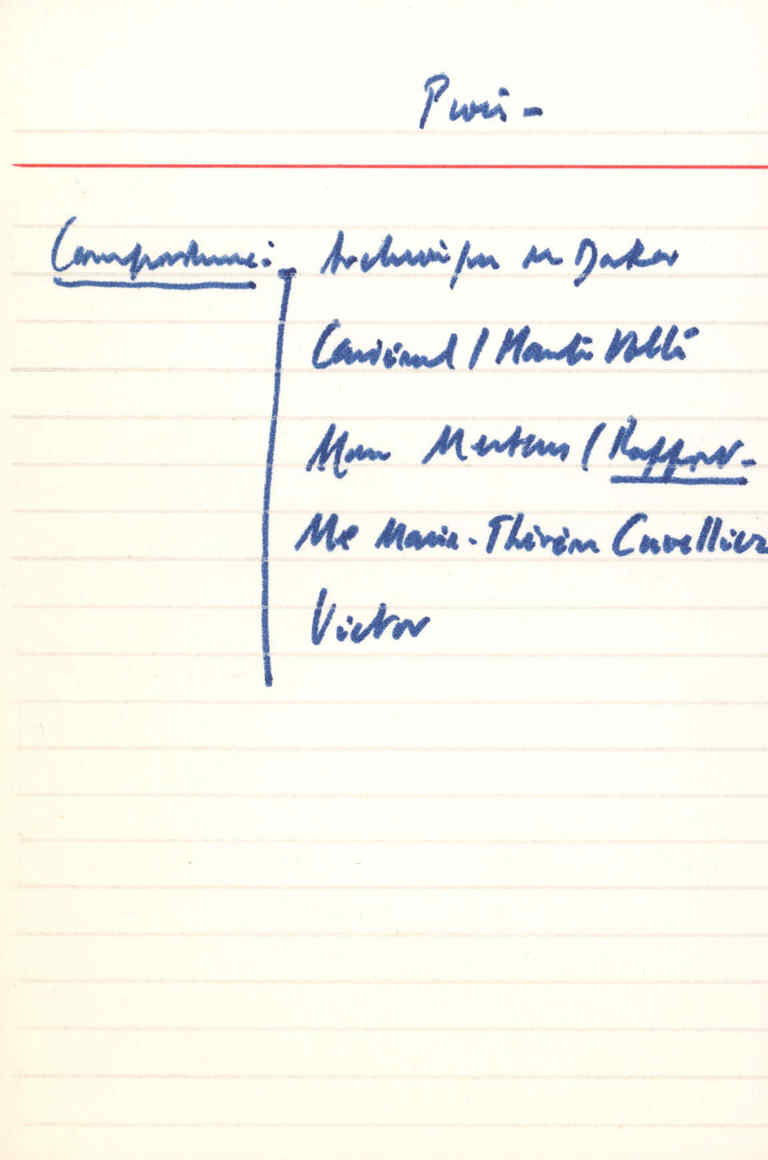 Paris -
Correspondance: Archevêque de Dakar
Cardinal /
Mertens / Rapport -
Me Marie-Thérèse Cuvelliez
Victor